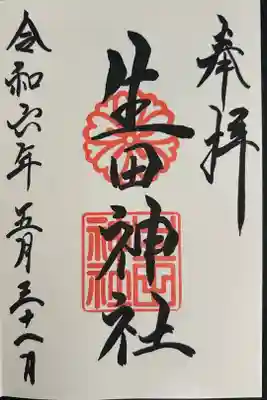 奉拝
生田神社
生田
神社
令和六年五月二十八日